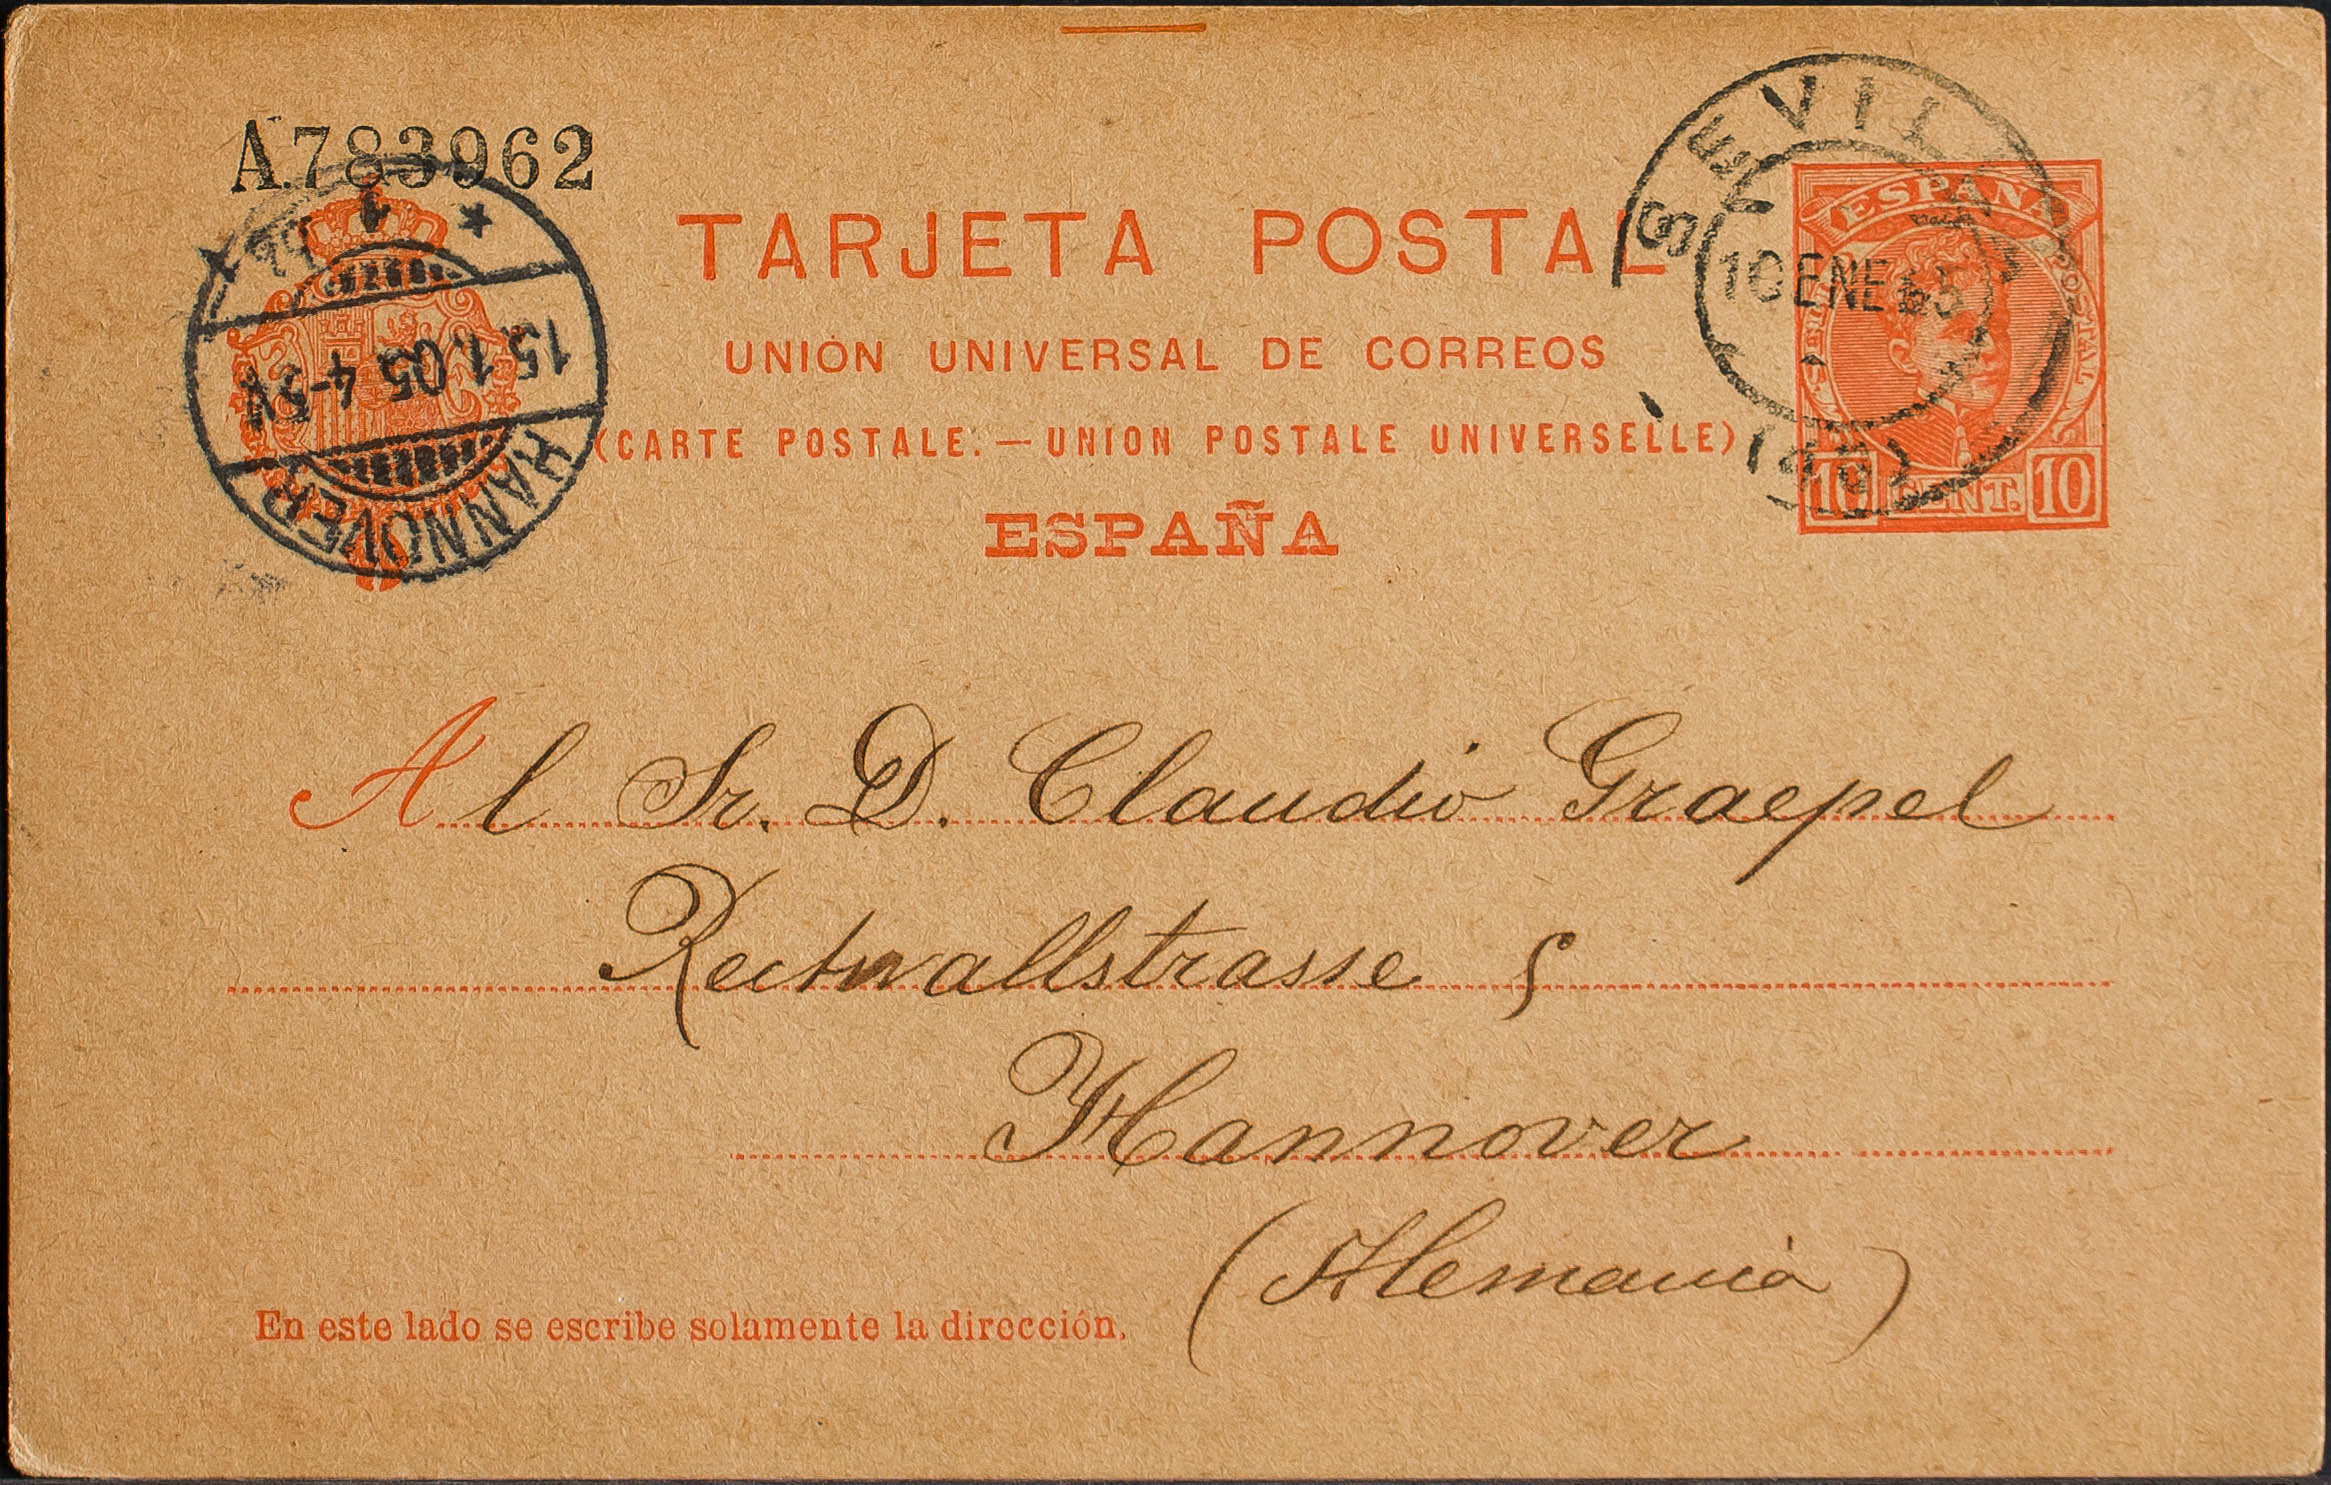 A.783962
TARJETA POSTAL
UNIÓN UNIVERSAL DE CORREOS
(CARTE POSTALE.—UNION POSTALE UNIVERSELLE)
ESPAÑA
SEVILLA
10 ENE 05
ESPAÑA
POSTAL
10 CENT. 10
HANNOVER
15.1.05. 4-5N
* 1
Al Sr. D. Claudio Graepel
Rectwallstrasse 9
Hannover
(Alemania)
En este lado se escribe solamente la dirección.